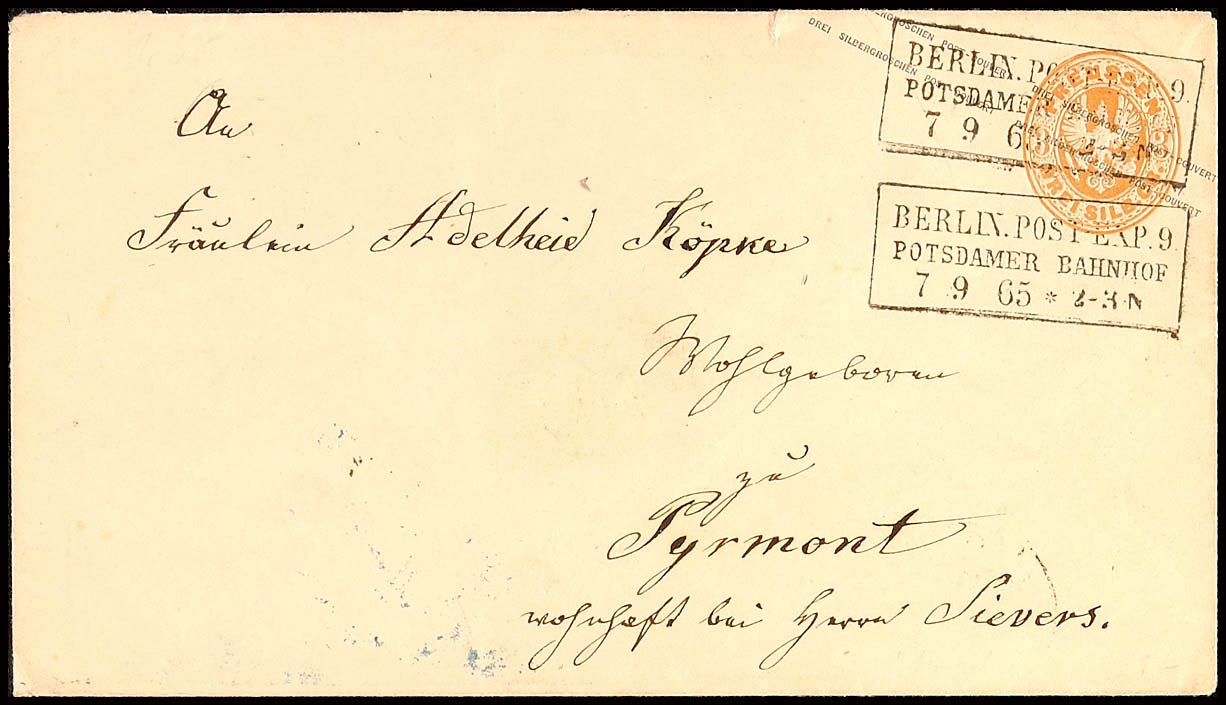 An
Fräulein Adelheid Köpke
Wohlgeboren
zu
Pyrmont
wohnhaft bei Herrn Sievers.
DREI SILBERGROSCHEN POST-COUVERT
DREI SILBERGROSCHEN POST-COUVERT
PREUSSEN
3 3
DREI SILB
BERLIN. PO 9.
POTSDAMER
7 9 6
BERLIN. POST EXP. 9.
POTSDAMER BAHNHOF
7 9 65 * 2-3 N